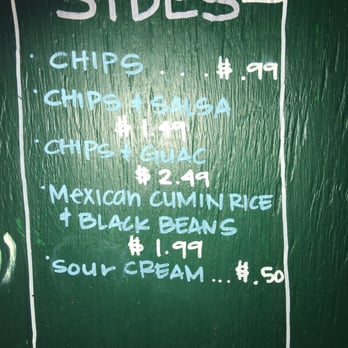 SIDES
· CHIPS . . . $ .99
· CHIPS & SALSA
$ 1.49
· CHIPS & GUAC
$ 2.49
· Mexican CUMIN RICE
& BLACK BEANS
$ 1.99
· SOUR CREAM ... $.50